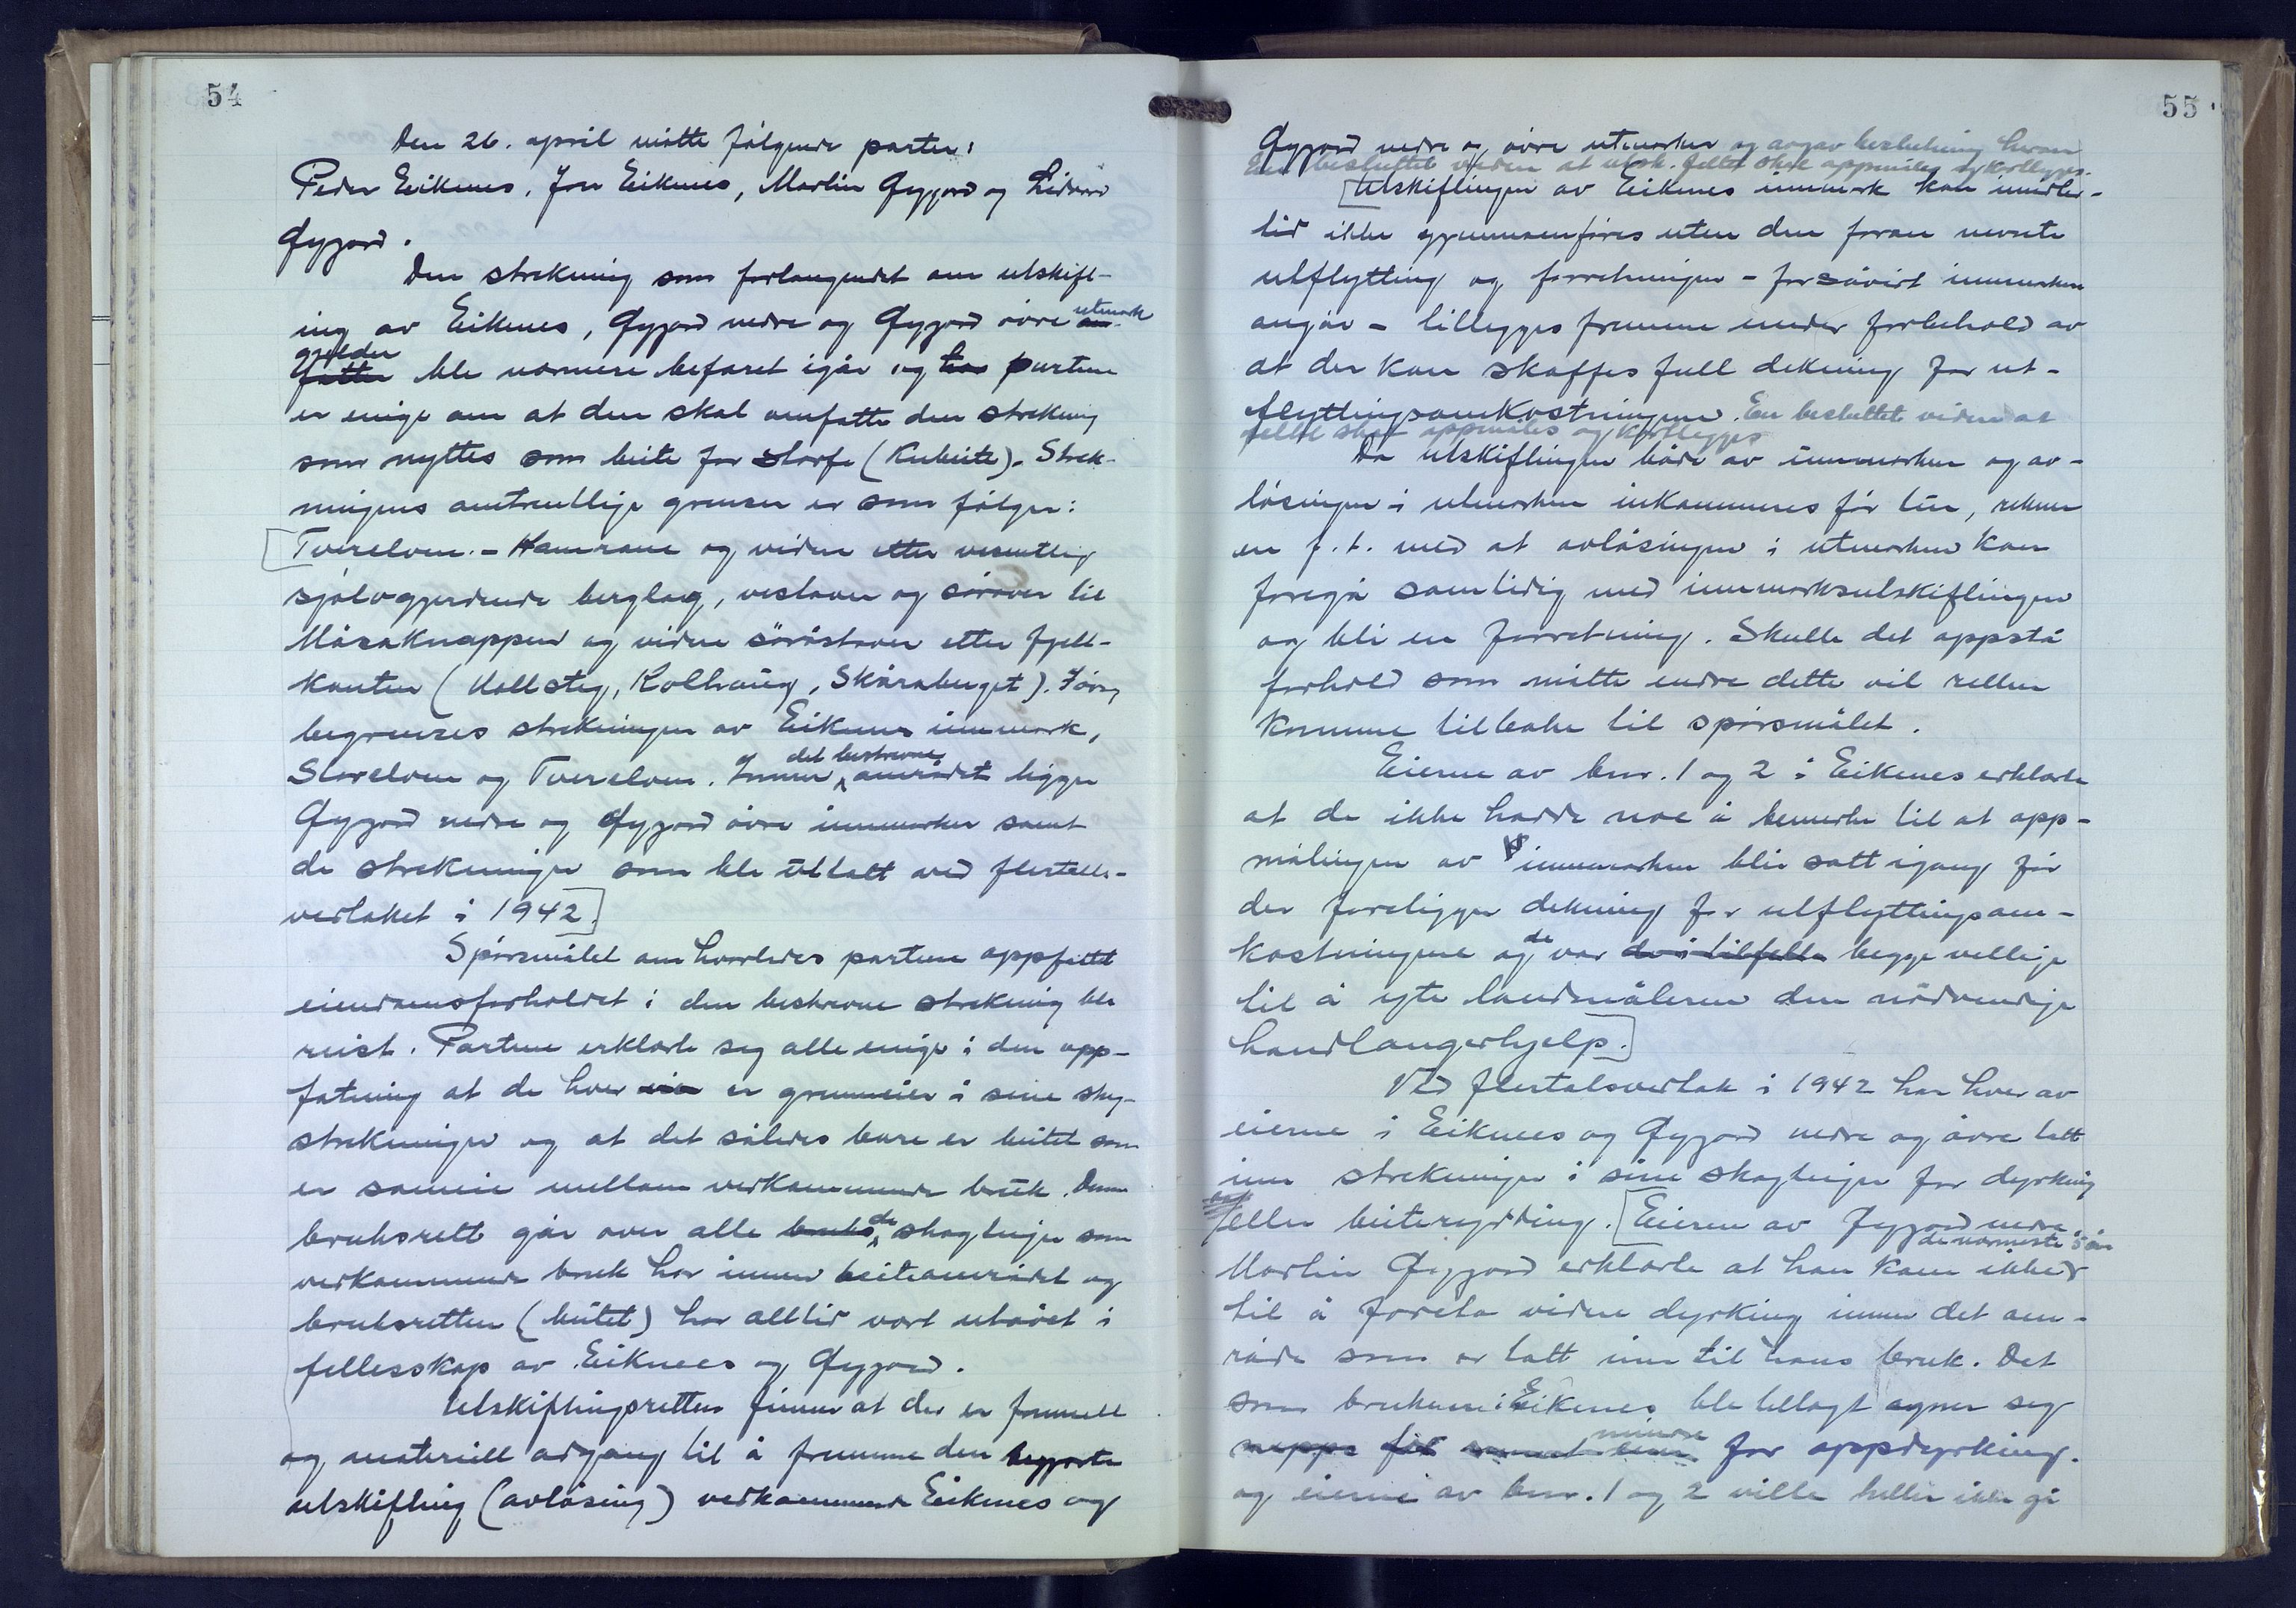 54
Den 26. april møtte følgende parter:
Peder Eiknes, Jon Eiknes, Martin Øygard og
Øygard.
Den strekning som forlangendet om utskift-
ing av Eiknes, Øygard nedre og Øygard øvre utmark
gjelder ble nærmere befaret igår og partene
er enige om at den skal omfatte den strekning
som nyttes som beite for storfe (kubeite). Strek-
ningens omtrentlige grenser er som følger:
Tverelven - Hamrane og videre etter vesentlig
sjølvgjerdende berglag, vestover og sørover til
Måsaknappen og videre sørøstover etter fjell-
kanten (Hallsteg, Kolhaug, Skåraberget). Forøvrig
begrenses strekningen av Eiknes innmark,
Storelven og Tverelven. Innen det beskrevne området ligger
Øygard nedre og Øygard øvre innmarker samt
de strekninger som ble uttatt ved flertalls-
vedtaket i 1942.
Spørsmålet om hvorledes partene oppfattet
eiendomsforholdet i den beskrevne strekning ble
reist. Partene erklærte seg alle enige i den opp-
fatning at de hver er grunneier i sine skog-
strekninger og at det således bare er beitet som
er sameie mellom vedkommende bruk. Denne
bruksrett går over alle de skogteiger som
vedkommende bruk har innen beiteområdet og
bruksretten (beitet) har alltid vært utøvet i
fellesskap av Eiknes og Øygard.
Utskiftingsretten finner at der er formell
og materiell adgang til å fremme den begjærte
utskifting (avløsing) vedkommende Eiknes og
55
Øygard nedre og øvre utmarker og avgav beslutning herom
En besluttet videre at utsk. feltet skal oppmåles og kartlegges.
Utskiftingen av Eiknes innmark kan imidler-
tid ikke gjennomføres uten den foran nevnte
utflytting og forretningen - forsåvidt innmarken
angår - tillegges fremme under forbehold av
at der kan skaffes full dekning for ut-
flyttingsomkostningene. En besluttet videre at
feltet skal oppmåles og kartlegges
Da utskiftingen både av innmarken og av-
løsingen i utmarken inkommeres før tur, rekner
en f.t. med at avløsingen i utmarken kan
foregå samtidig med innmarksutskiftingen
og bli en forretning. Skulle det oppstå
forhold som måtte endre dette vil retten
komme tilbake til spørsmålet.
Eierne av bnr. 1 og 2 i Eiknes erklærte
at de ikke hadde noe å bemerke til at opp-
målingen av innmarken blir satt igang før
der foreligger dekning for utflyttingsom-
kostningene og de var de i tilfelle begge villige
til å yte landmåleren den nødvendige
handlangerhjelp.
Ved flertalsvedtak i 1942 har hver av
eierne i Eiknes og Øygard nedre og øvre tatt
inn strekninger i sine skogteiger for dyrking
eller beiterydding. Eieren av Øygard nedre,
de nærmeste 5 år
Martin Øygard erklærte at han kom ikke
til å foreta videre dyrking innen det om-
råde som er tatt inn til hans bruk. Det
som brukerne i Eiknes ble tillagt egner seg
neppe mindre for oppdyrking.
og eierne av bnr. 1 og 2 ville heller ikke gå